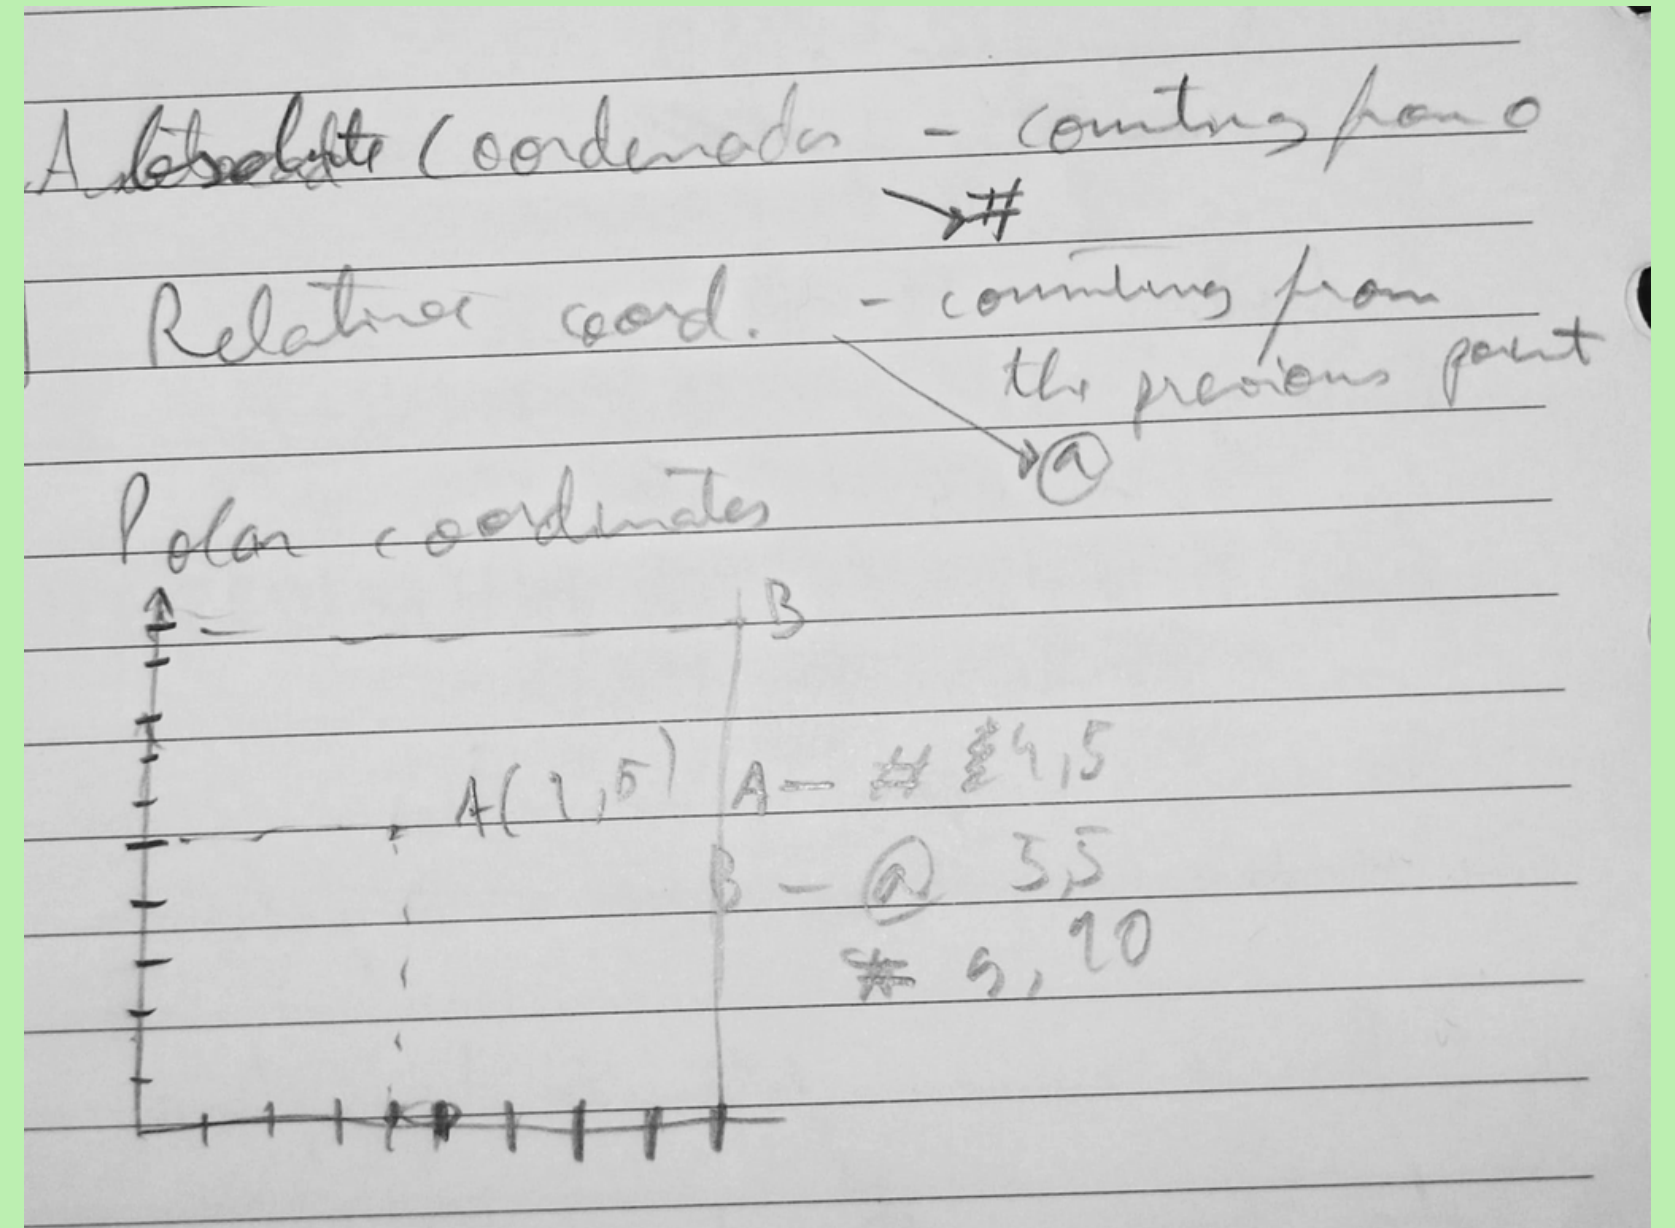 Absolute Coordenades - counting from 0
#
Relative coord. - counting from
the previous point
@
Polar coordinates
B
A( ,5) A - # 4,5
B - @ 5,5
# 9, 10